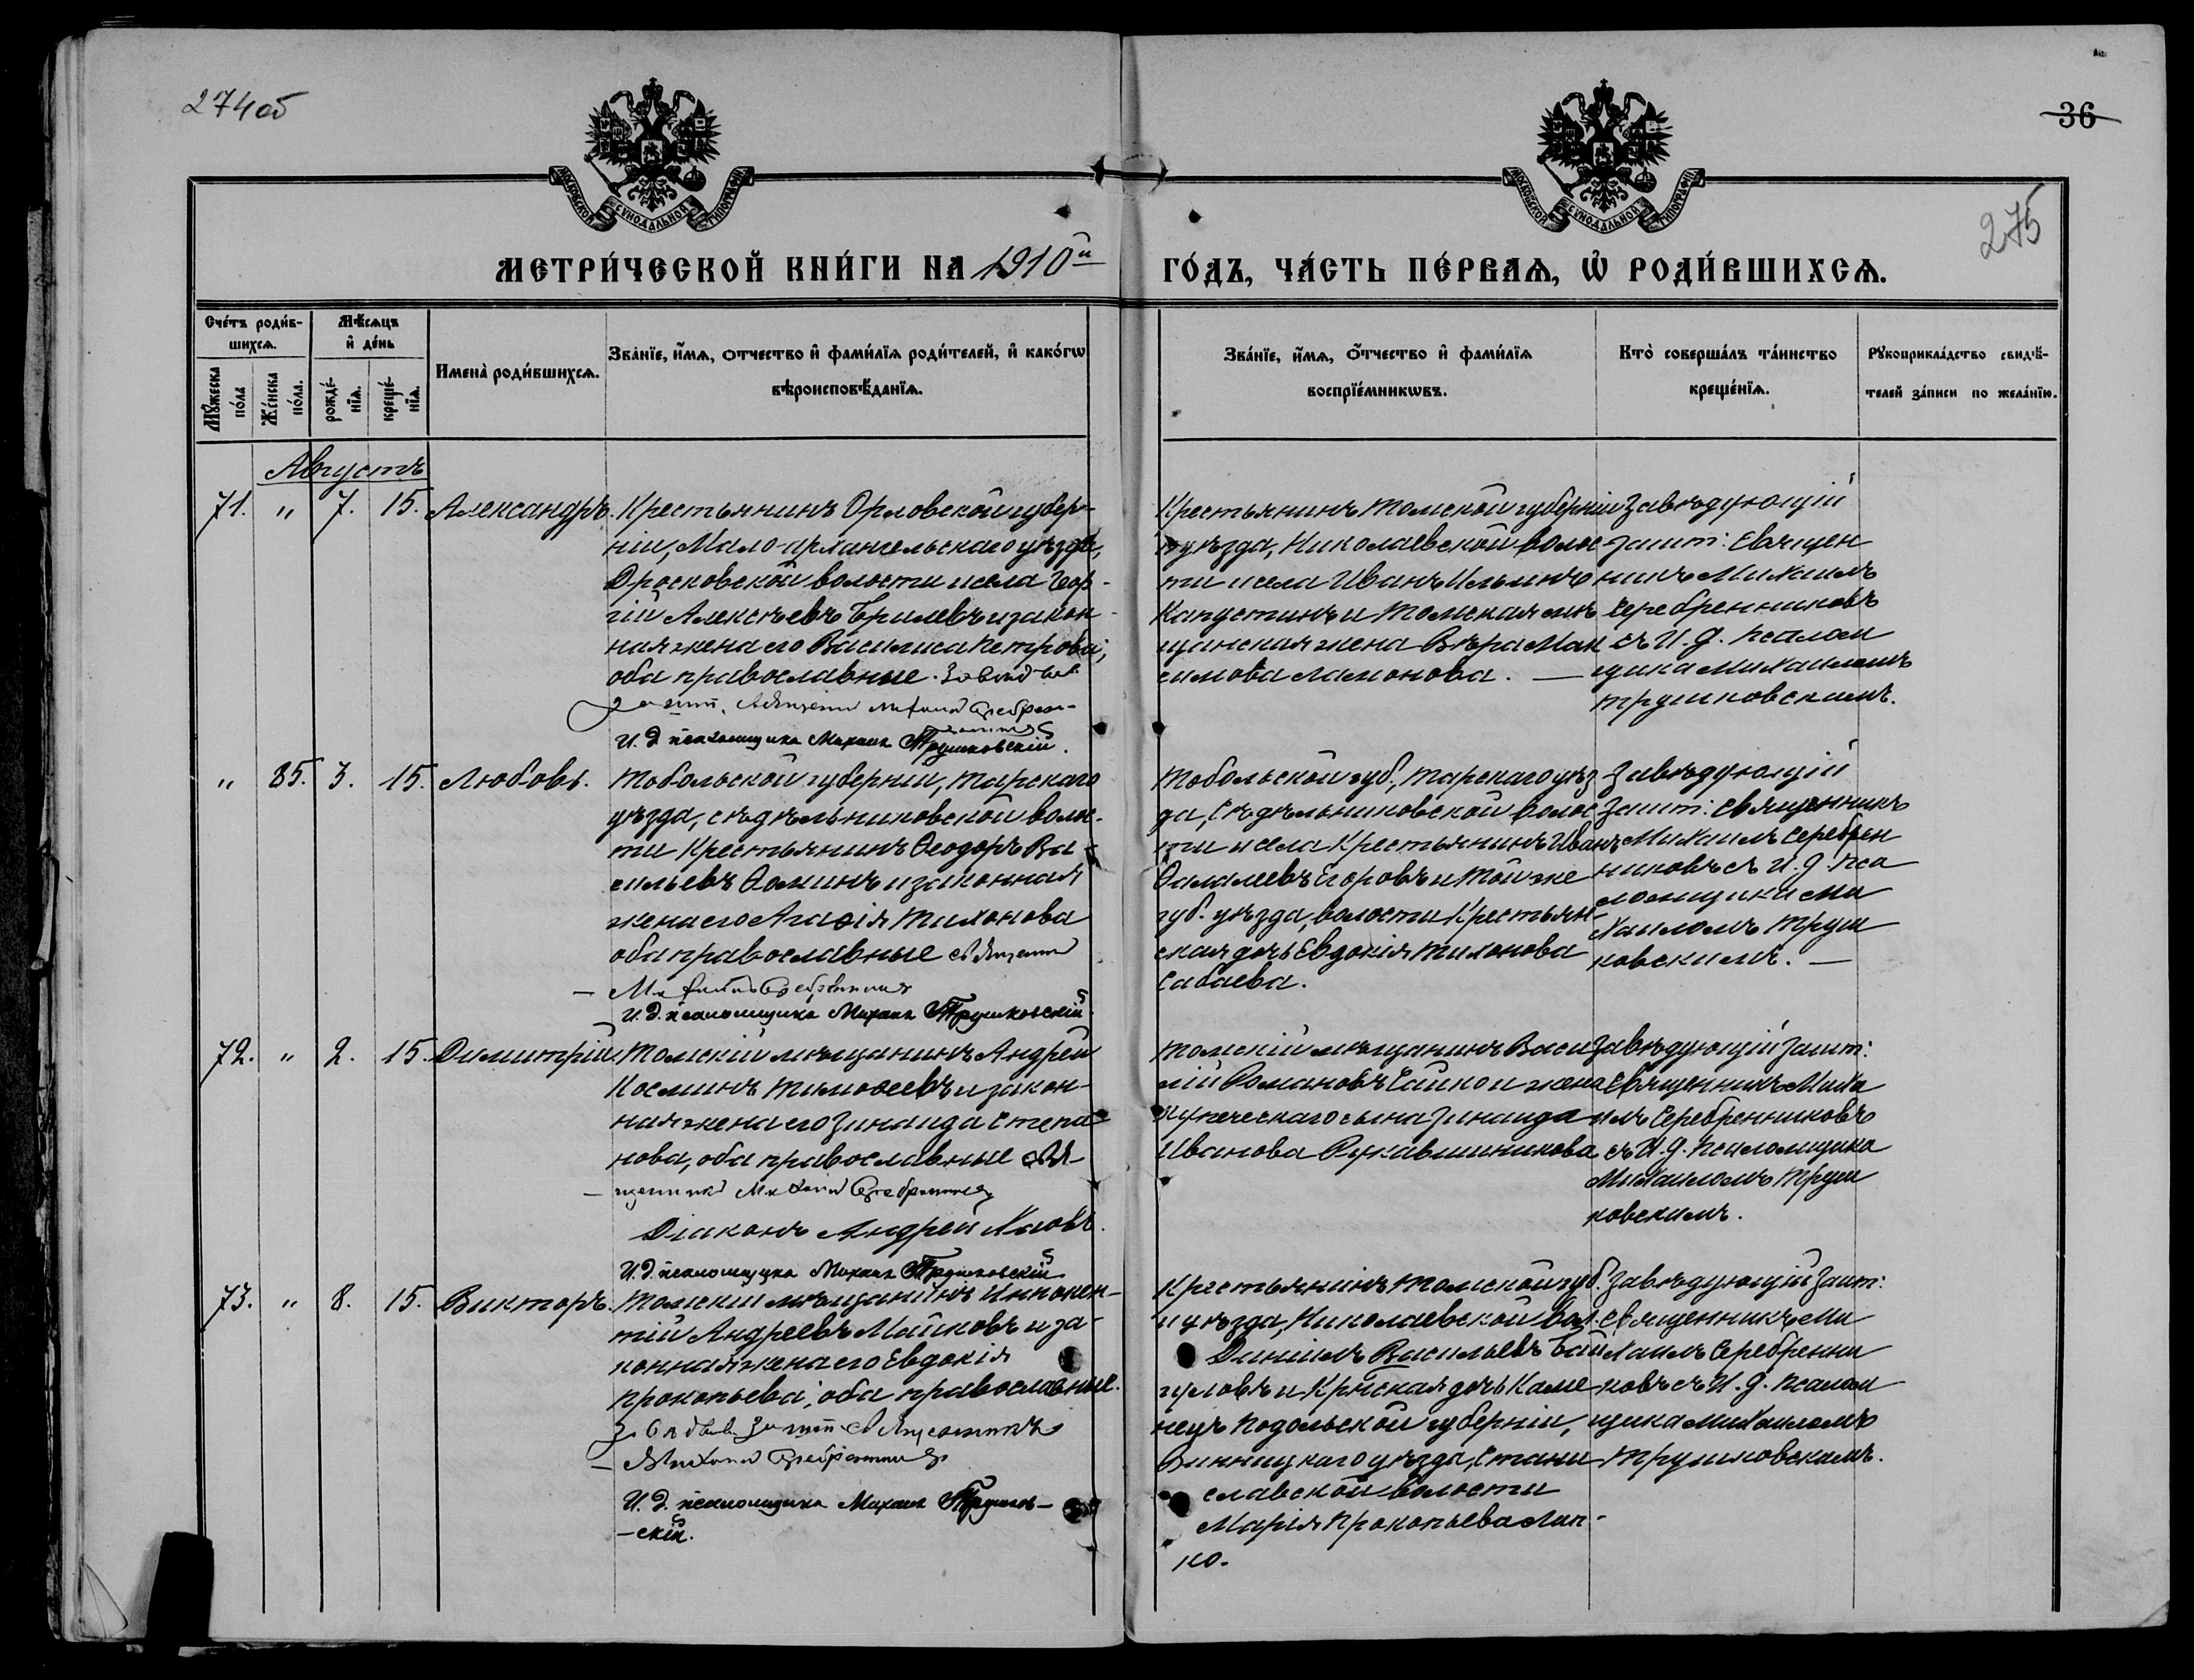 274об
36
275
МОСКОВСКОЙ СѴНОДАЛЬНОЙ ТИПОГРАФІИ
МОСКОВСКОЙ СѴНОДАЛЬНОЙ ТИПОГРАФІИ
МЕТРИ́ЧЕСКОЙ КНИ́ГИ НА 1910й
ГО́ДЪ, ЧА́СТЬ ПЕ́РВАѦ, Ѡ҆ РОДИ́ВШИХСѦ.
Сче́тъ роди́в-
шихсѧ.
Мѣ́сѧцъ
и҆ де́нь
Мꙋ́жеска по́ла
Же́нска по́ла.
рожде́-нїѧ.
креще́-нїѧ.
Имена̀ роди́вшихсѧ.
Зва́нїе, и҆́мѧ, о́тчество и҆ фами́лїѧ роди́телей, и҆ како́гѡ
вѣроисповѣ́данїѧ.
Зва́нїе, и҆́мѧ, о́тчество и҆ фами́лїѧ
воспрїе́мникѡвъ.
Кто̀ соверша́лъ та́инство
креще́нїѧ.
Рꙋкоприкла́дство свидѣ́-
телей за́писи по жела́нїю.
Августъ
71. " 7. 15. Александръ.
Крестьянинъ Орловской губер-
ніи, Мало-архангельскаго уѣзда,
Дросковской волости и села Геор-
гій Алексѣевъ Брилевъ и закон-
ная жена его Василиса Петрова,
оба православные. Завѣд
зашт. Священник Михаил Серебрен-
И. д. псаломщика Михаил Трушковскій.
Крестьянинъ Томской губерніи
и уѣзда, Николаевской волос
ти и села Иванъ Ильинъ
Капустинъ и Томская мѣ
щанская жена Вѣра Мак
симова Мамонова. —
Завѣдующій
зашт: Священ
никъ Михаилъ
Серебренниковъ
съ И. д. псалом
щика Михаиломъ
Трушковскимъ.
" 85. 3. 15. Любовь.
Тобольской губерніи, Тарскаго
уѣзда, Сѣдельниковской волос-
ти Крестьянинъ Ѳеодоръ Ва-
сильевъ Ѳоминъ и законная
жена его Агаѳія Тихонова
оба православные Священник
— Михаил Серебренников
И. д. псаломщика Михаил Трушковскій
Тобольской губ., Тарскаго уѣз
да, Сѣдельниковской волос
ти и села Крестьянинъ Иванъ
Ѳалалеевъ Егоровъ и той же
губ. уѣзда, волости Крестьян-
ская дочь Евдокія Тихонова
Сабаева.
Завѣдующій
зашт: священникъ
Михаилъ Серебрен
никовъ съ И. д. пса
ломщика Ми
хаиломъ Труш
ковскимъ. —
72. " 2. 15. Димитрій.
Томскій мѣщанинъ Андрей
Косминъ Тимоѳеевъ и закон-
ная жена его Зинаида Степа-
нова, оба православные Свя-
— щенник Михаил Серебренников
Діаконъ Андрей
И. д. псаломщика Михаил Трушковскій
Томскій мѣщанинъ Васи
лій Романовъ Чайко и жена
купеческаго сына Зинаида
Иванова Рукавишникова
Завѣдующій зашт:
Священникъ Миха
илъ Серебренниковъ
съ И. д. псаломщика
Михаиломъ Труш
ковскимъ.
73. " 8. 15. Викторъ.
Томскій мѣщанинъ Иннокен-
тій Андреевъ Майковъ и за-
конная жена его Евдокія
Прокопьева; оба православные.
Завѣдыв. зашт Священникъ
— Михаил Серебренников
И. д. псаломщика Михаил Трушков-
-скій.
Крестьянинъ Томской губ.
и уѣзда, Николаевской вол.
Даніилъ Васильевъ Бай
гуловъ и Кр-нская дочь Каме
нецъ Подольской губерніи,
Винницкаго уѣзда, Стани
славской волости
Марія Прокопьева Лип-
ко.
Завѣдующій зашт:
Священникъ Ми
хаилъ Серебренни
ковъ съ И. д. псалом
щика Михаиломъ
Трушковскимъ.